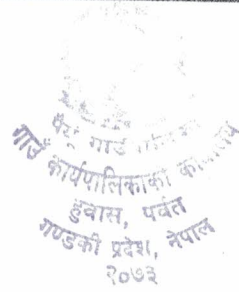 पैयूं गाउँ
गाउँ कार्यपालिकाको कार्यालय
हुवास, पर्वत
गण्डकी प्रदेश, नेपाल
२०७३